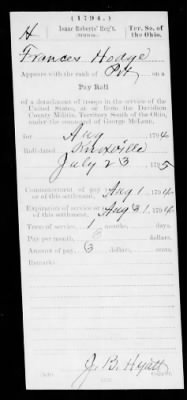 (1794.)
H
Isaac Roberts' Reg't.
Ter. So. of the Ohio.
Frances Hodge
Appears with the rank of Pvt on a
Pay Roll
of a detachment of troops in the service of the
United States, at or from the Davidson
County Militia, Territory South of the Ohio,
under the command of George McLean,
for Aug , 1794
Roll dated Knoxville
July 23 , 1795
Commencement of pay of this settlement, Aug 1 , 1794.
Expiration of service of this settlement, Aug 31 , 1794.
Term of service, 1 months, days
Pay per month, 3 dollars, cents.
Amount of pay, 3 dollars, cents.
Remarks:
J. B. Hyatt